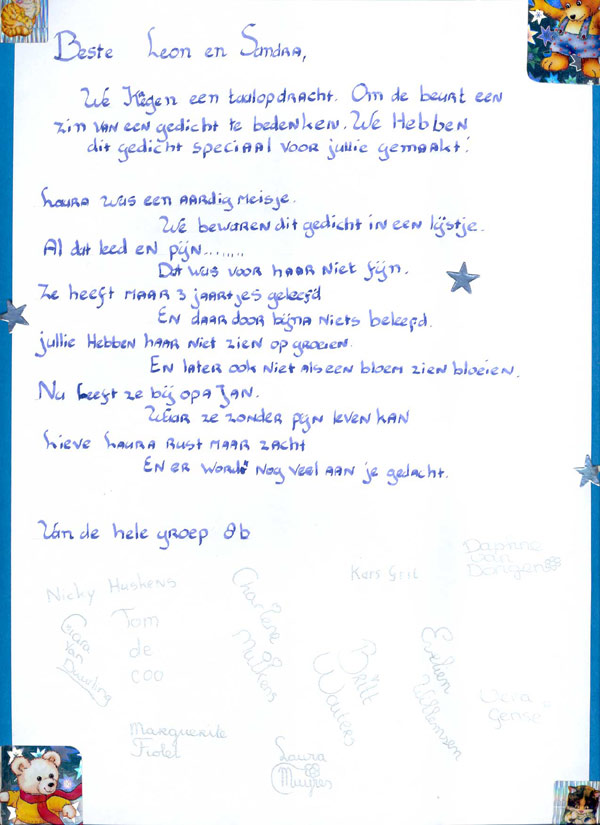 Beste Leon en Sandra,
We Kregen een taalopdracht. Om de beurt een
zin van een gedicht te bedenken. We Hebben
dit gedicht speciaal voor jullie gemaakt!
Laura was een aardig meisje.
We bewaren dit gedicht in een lijstje.
Al dat leed en pijn........
Dat was voor haar niet fijn.
Ze heeft maar 3 jaartjes geleefd
En daardoor bijna niets beleefd.
jullie Hebben haar niet zien opgroeien.
En later ook niet als een bloem zien bloeien.
Nu leeft ze bij opa Jan.
Waar ze zonder pijn leven kan
Lieve Laura rust maar zacht
En er wordt nog veel aan je gedacht.
Van de hele groep 8b
Daphne
van
Dongen
Kars Grit
Nicky Huskens
Charlene
Mulkens
Tom
de
coo
van
Britt
Wouters
Evelien
Willemsen
Vera
Gense
Marguerite
Fiolet
Laura